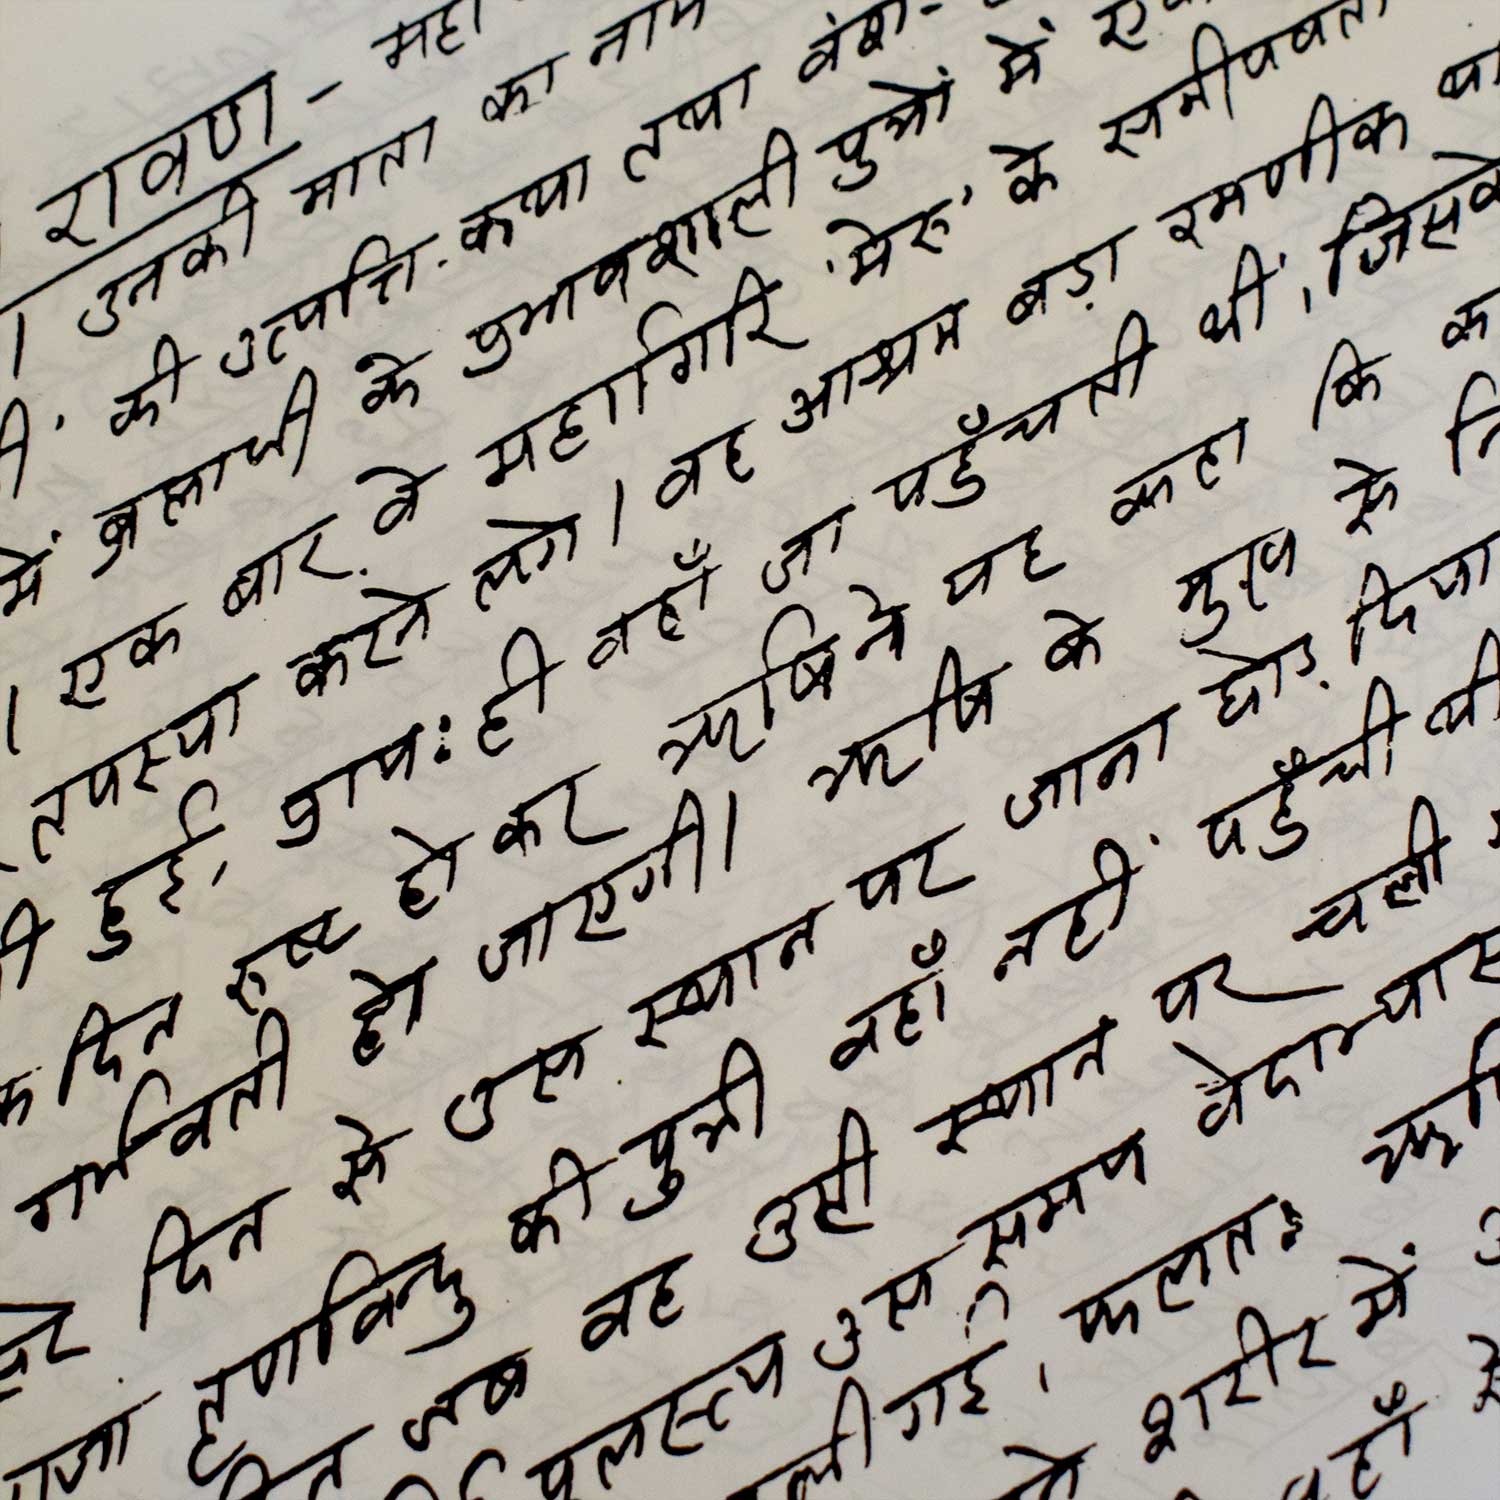 रावण - महा
। उनकी माता का नाम
की उत्पत्ति-कथा तथा वंश-
में ब्रह्माजी के प्रभावशाली पुत्रों में
। एक बार वे महागिरि 'मेरु' के समीपवर्ती
तपस्या करने लगे। वह आश्रम बड़ा रमणीक था
हुई, प्रायः ही वहाँ जा पहुँचती थीं, जिसके
दिन रुष्ट होकर ऋषि ने यह कहा कि
गर्भवती हो जाएगी। ऋषि के मुख से
दिन से उस स्थान पर जाना छोड़ दिया
तृणविन्दु की पुत्री वहाँ नहीं पहुँची थी
जब वह उसी स्थान पर चली
पुलस्त्य उस समय वेदाभ्यास
गई, फलतः ऋषि
शरीर में
वहाँ से